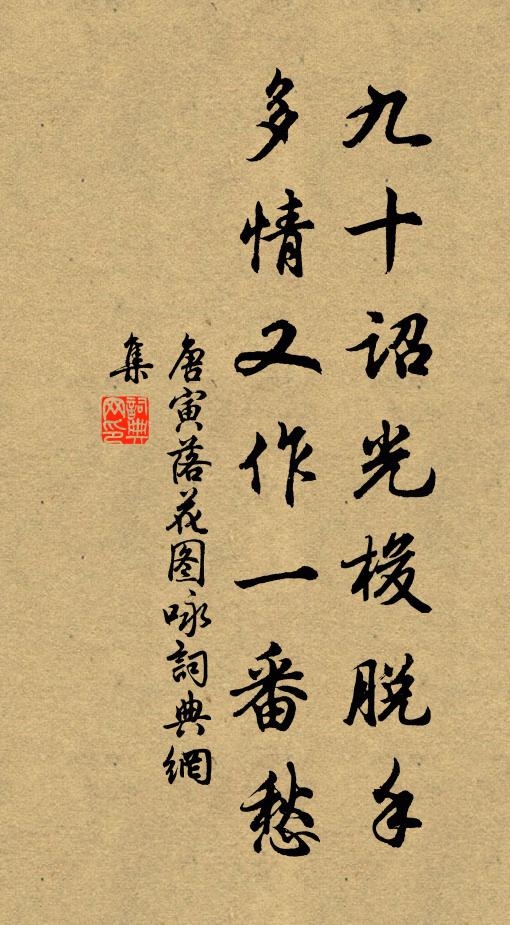 九十詔光梭脱手
多情又作一番愁
唐寅落花图咏詞典網
集
詞典
网印